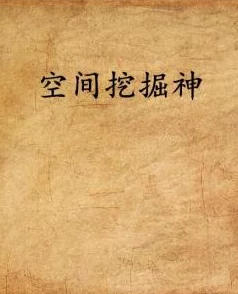 空间挖掘神